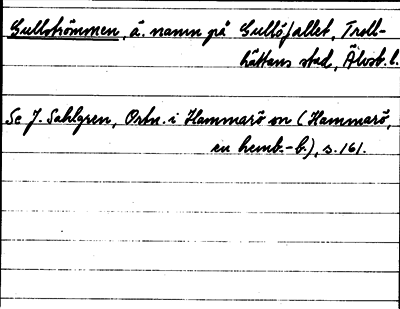 Gullströmmen, ä. namn på Gullöfallet, Troll-
hättans stad, Älvsb. l.
Se J. Sahlgren, Ortn. i Hammarö sn (Hammarö,
en hemb.-b.), s. 161.